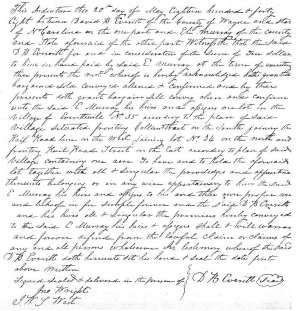 This Indenture this 20th day of May Eighteen hundred & forty
Eight between David B Everitt of the County of Wayne and State
of N Carolina on the one part and Eli Murray of the county
and State aforesaid of the other part Witnesseth that the said
D B Everitt for and in consideration of the sum of Ten dollars
to him in hand paid by said E Murray at the time of
these presents the receipt whereof is hereby acknowledged hath granted
bargained sold conveyed aliened & confirmed and by these
presents doth grant bargain sell convey alien and confirm
unto the said E Murray his heirs and assigns one lot in the
Village of Everittsville No 35 according to the plan of said
Village situated fronting on the South joining the
Rail Road line on the West joining lot No 34 on the North and
fronting Rail Road Street on the East according to plan of said
Village containing one acre To have and to hold the aforesaid
lot together with all & singular the privileges and appurte
nances belonging or in any wise appertaining to him the said
E Murray his heirs and assigns to his and their only proper use
and behoof in fee simple forever and the said D B Everitt
and his heirs all & singular the premises hereby conveyed
to the said E Murray his heirs & assigns shall & will warrant
and forever defend from the lawful claim or claims of
any and all persons whatsoever In testimony whereof the said
D B Everitt doth hereunto set his hand & seal the date first
above written
Signed Sealed & delivered in the presence of D B Everitt (Seal)
Jno Wright
J. W. S. West